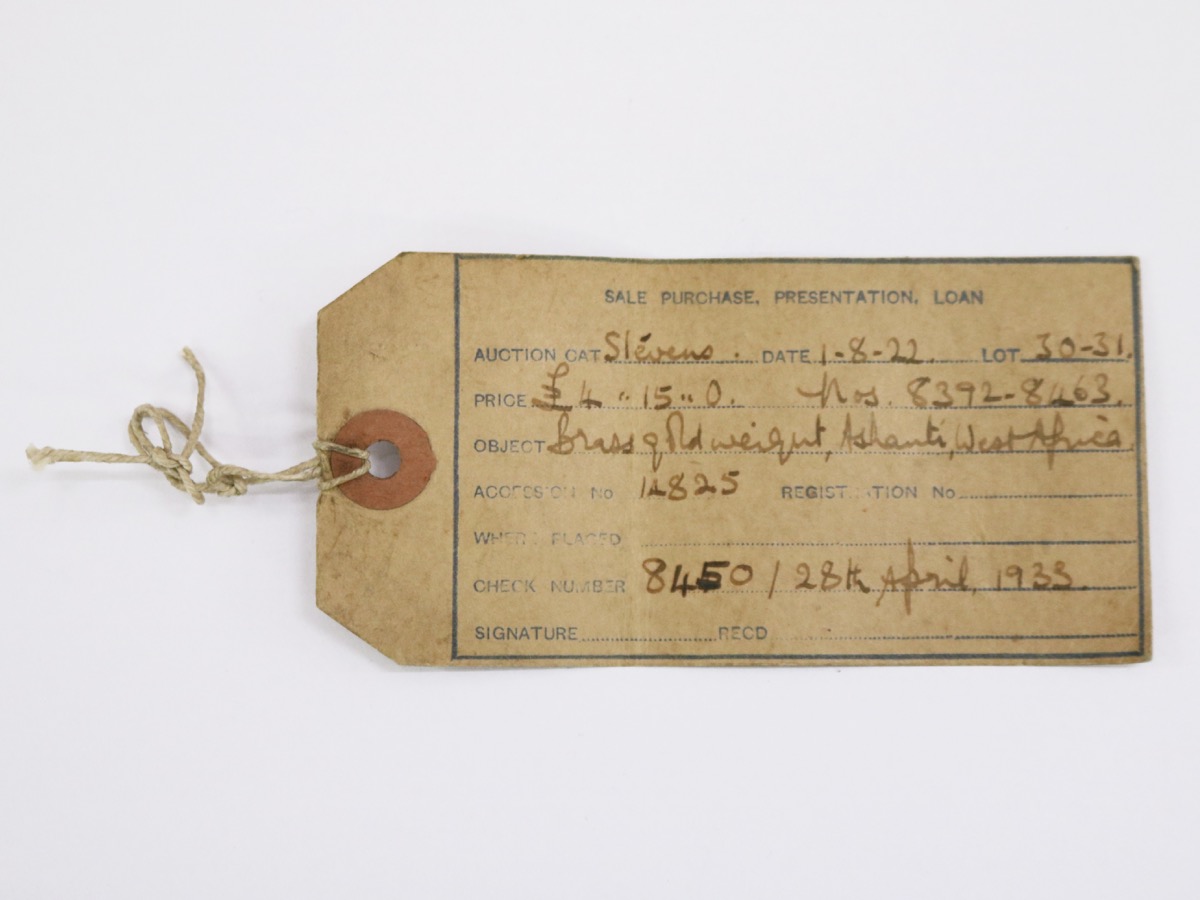 SALE PURCHASE, PRESENTATION, LOAN
AUCTION CAT. Stevens. DATE 1-8-22. LOT 30-31.
PRICE £4 " 15 " 0. Nos. 8392-8463.
OBJECT brass gold weight, Ashanti, West Africa
ACCESSION No 14825 REGISTRATION No
WHERE PLACED
CHECK NUMBER 8450 / 28th April, 1933.
SIGNATURE RECD